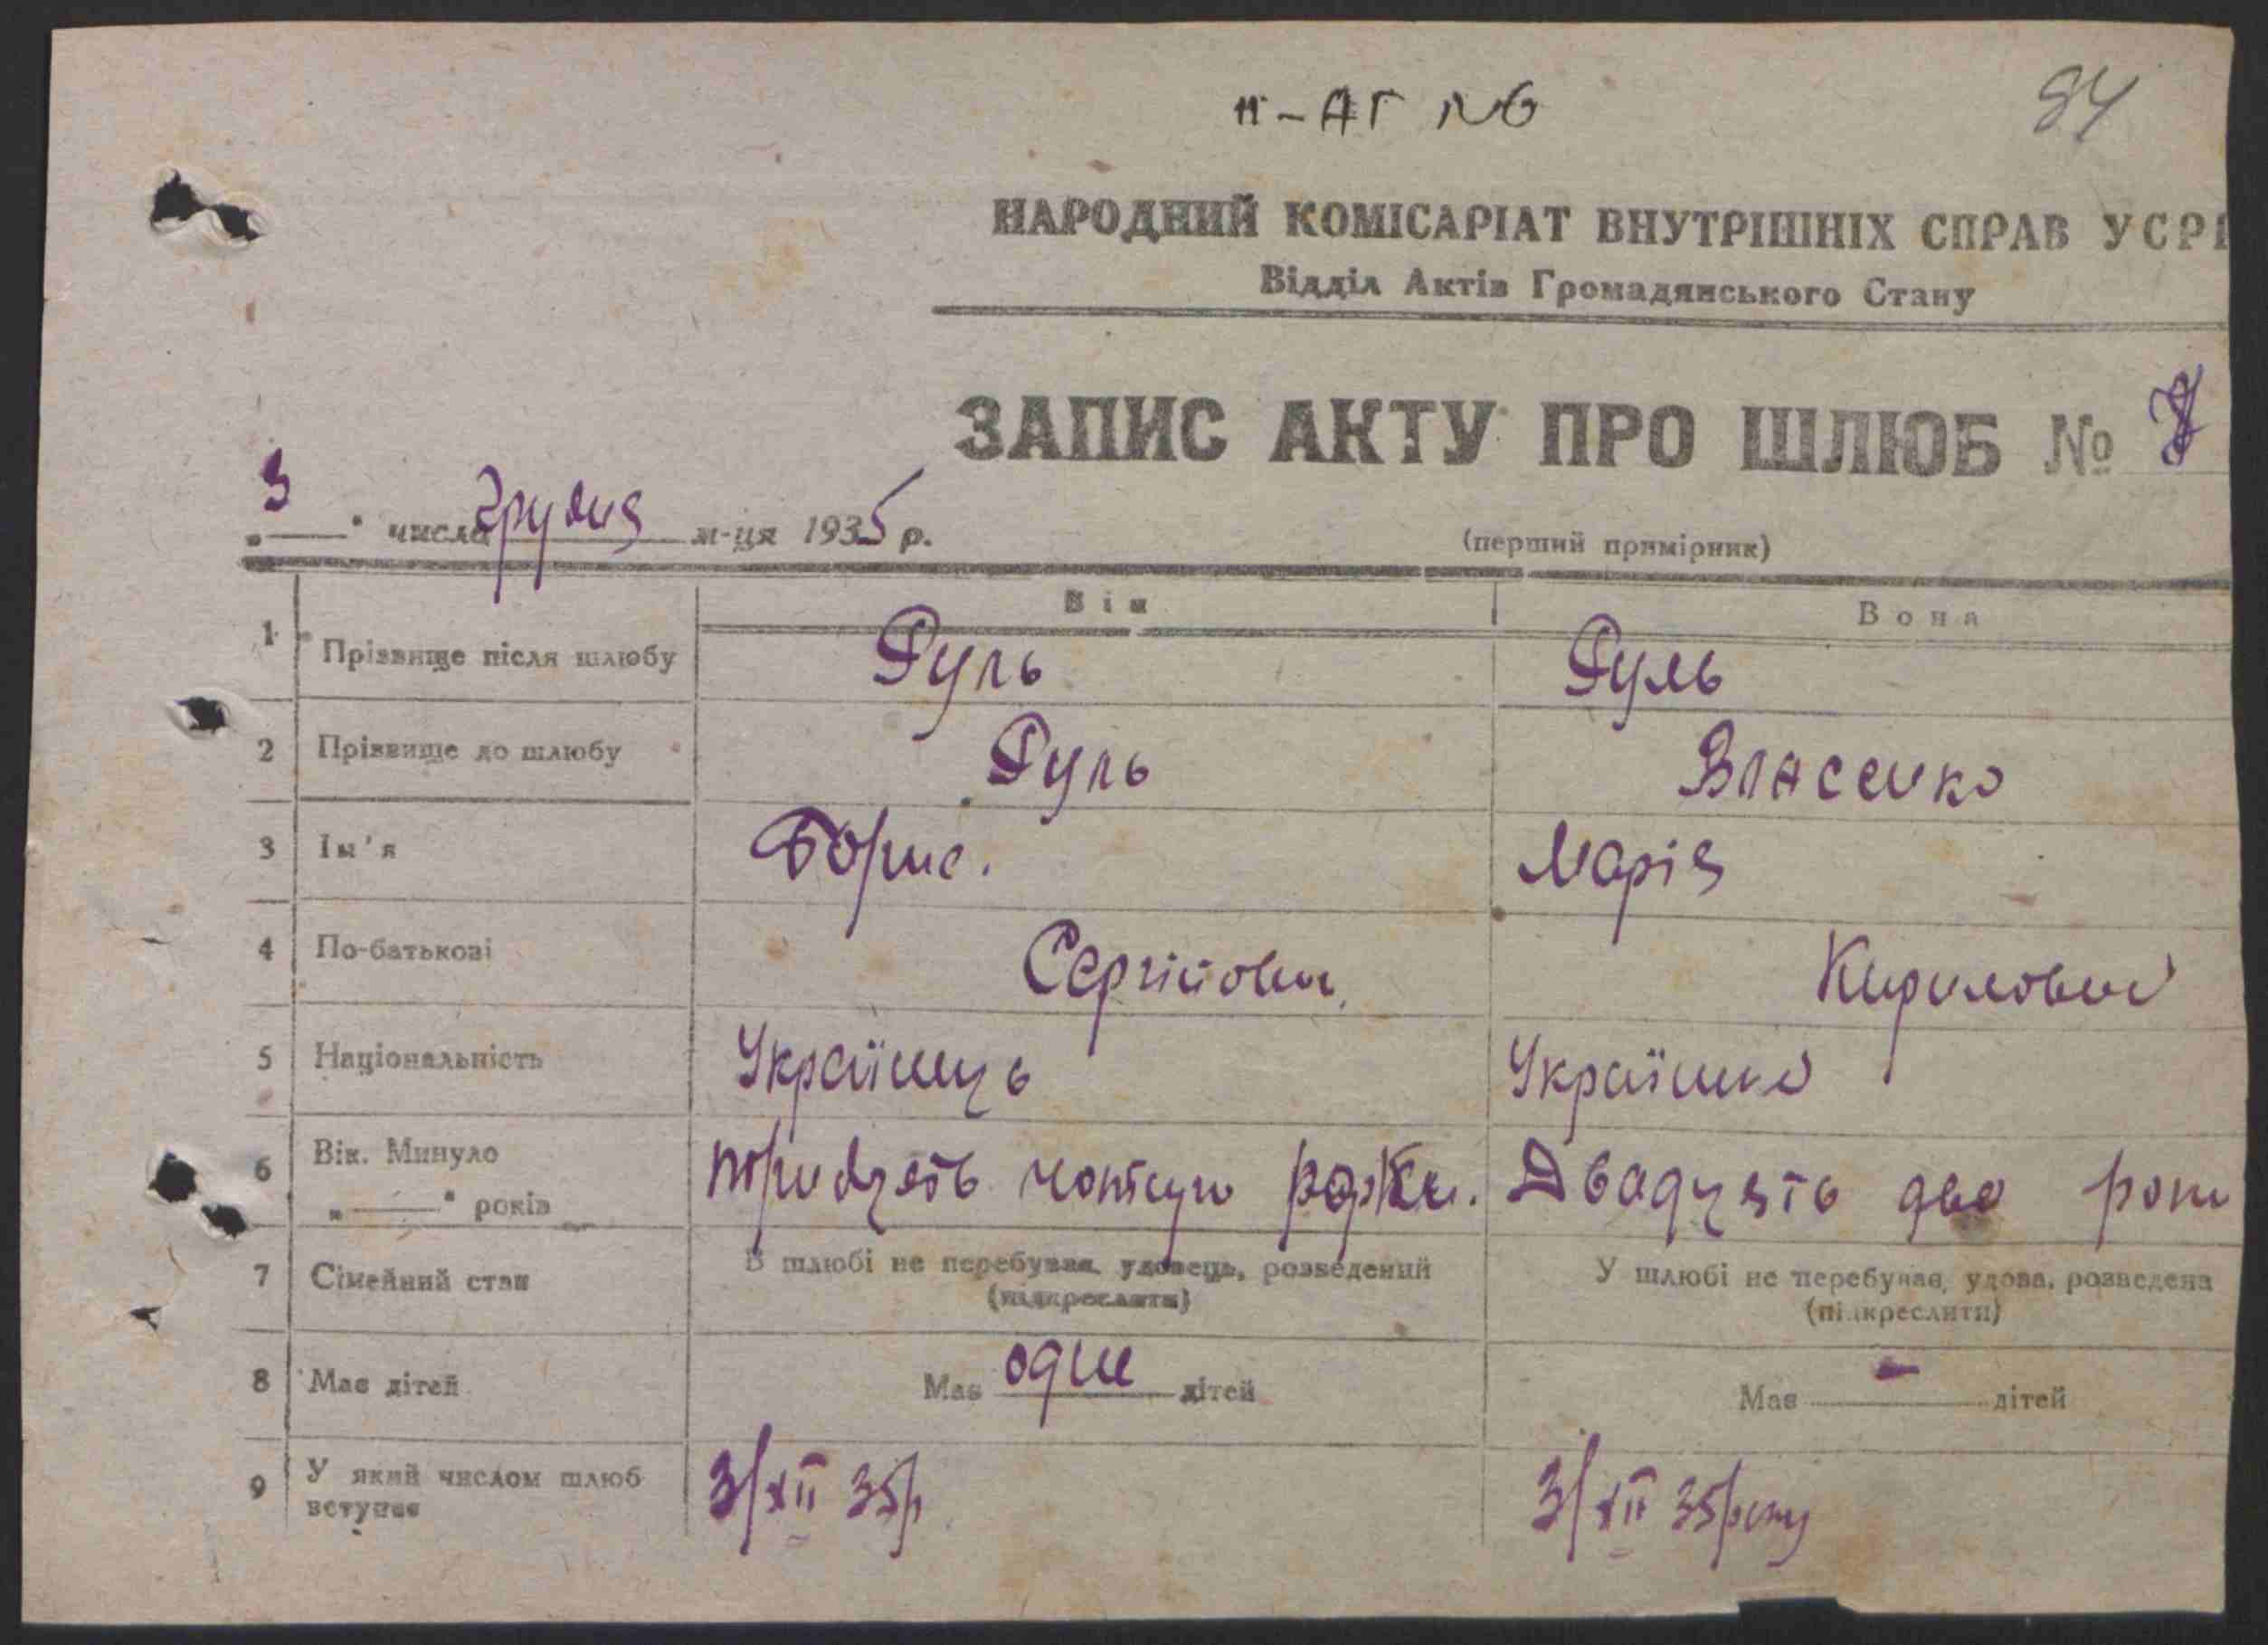 ІІ-АГ №6
84
НАРОДНИЙ КОМІСАРІАТ ВНУТРІШНІХ СПРАВ УСРР
Відділ Актів Громадянського Стану
ЗАПИС АКТУ ПРО ШЛЮБ №
"3" числа грудня м-ця 1935 р.
(перший примірник)
Він Вона
1 Прізвище після шлюбу Руль Руль
2 Прізвище до шлюбу Руль Власенко
3 Ім'я Борис. Марія
4 По-батькові Сергійович Кирилович
5 Національність Українець Українка
6 Вік. Минуло "—" років тридцять Двадцять два роки
7 Сімейний стан В шлюбі не перебував, удовець, розведений (підкреслити) У шлюбі не перебував, удова, розведена (підкреслити)
8 Має дітей Має одне дітей Має — дітей
9 У який числом шлюб вступає 3/XII 35р 3/XII 35року